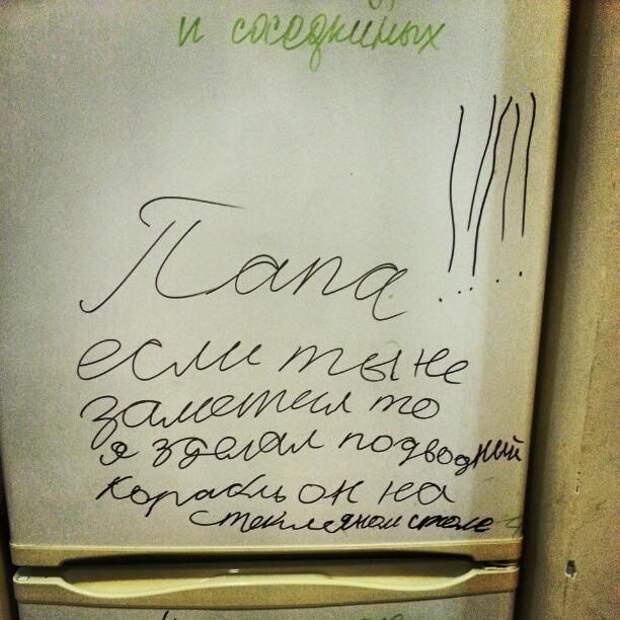 и соседкиных
Папа!!!!!
если ты не
заметил то
я зделал подводный
корабль он на
стеклянном столе